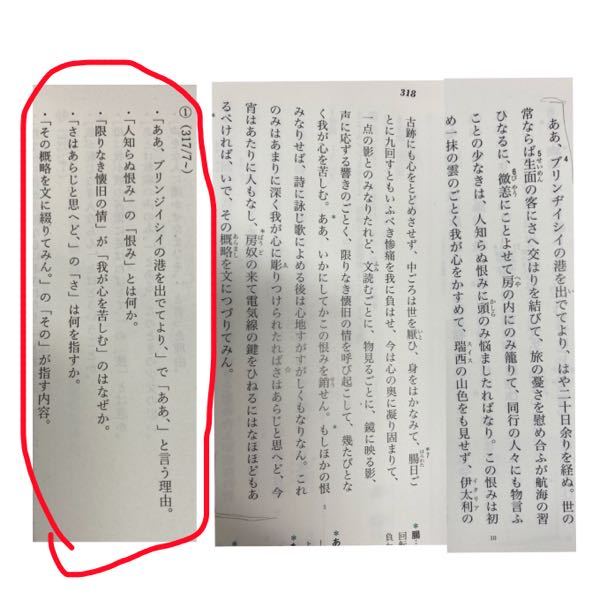 ああ、ブリンヂイシイの港を出でてより、はや二十日余りを経ぬ。世の
常ならば生面の客にさへ交はりを結びて、旅の憂さを慰め合ふが航海の習
ひなるに、微恙にことよせて房の内にのみ籠りて、同行の人々にも物言ふ
ことの少なきは、人知らぬ恨みに頭のみ悩ましたればなり。この恨みは初
め一抹の雲のごとく我が心をかすめて、瑞西の山色をも見せず、伊太利の
318
古跡にも心をとどめさせず、中ごろは世を厭ひ、身をはかなみて、腸日ご
とに九回すともいふべき惨痛を我に負はせ、今は心の奥に凝り固まりて、
一点の影とのみなりたれど、文読むごとに、物見るごとに、鏡に映る影、
声に応ずる響きのごとく、限りなき懐旧の情を呼び起こして、幾たびとな
く我が心を苦しむ。ああ、いかにしてかこの恨みを銷せん。もしほかの恨
みなりせば、詩に詠じ歌によめる後は心地すがすがしくもなりなん。これ
のみはあまりに深く我が心に彫りつけられたればさはあらじと思へど、今
宵はあたりに人もなし、房奴の来て電気線の鍵をひねるにはなほほどもあ
るべければ、いで、その概略を文につづりてみん。
①(317/7~)
・「ああ、ブリンジイシイの港を出でてより、」で「ああ、」と言う理由。
・「人知らぬ恨み」の「恨み」とは何か。
・「限りなき懐旧の情」が「我が心を苦しむ」のはなぜか。
・「さはあらじと思へど、」の「さ」は何を指すか。
・「その概略を文に綴りてみん。」の「その」が指す内容。